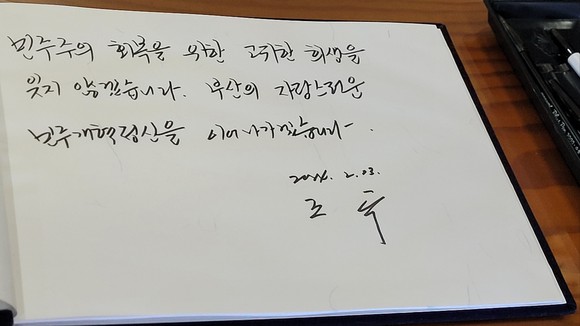 민주주의 회복을 위한 고귀한 희생을
잊지 않겠습니다. 부산의 자랑스러운
민주개혁정신을 이어나가겠습니다.
2024. 2. 03.
조 국